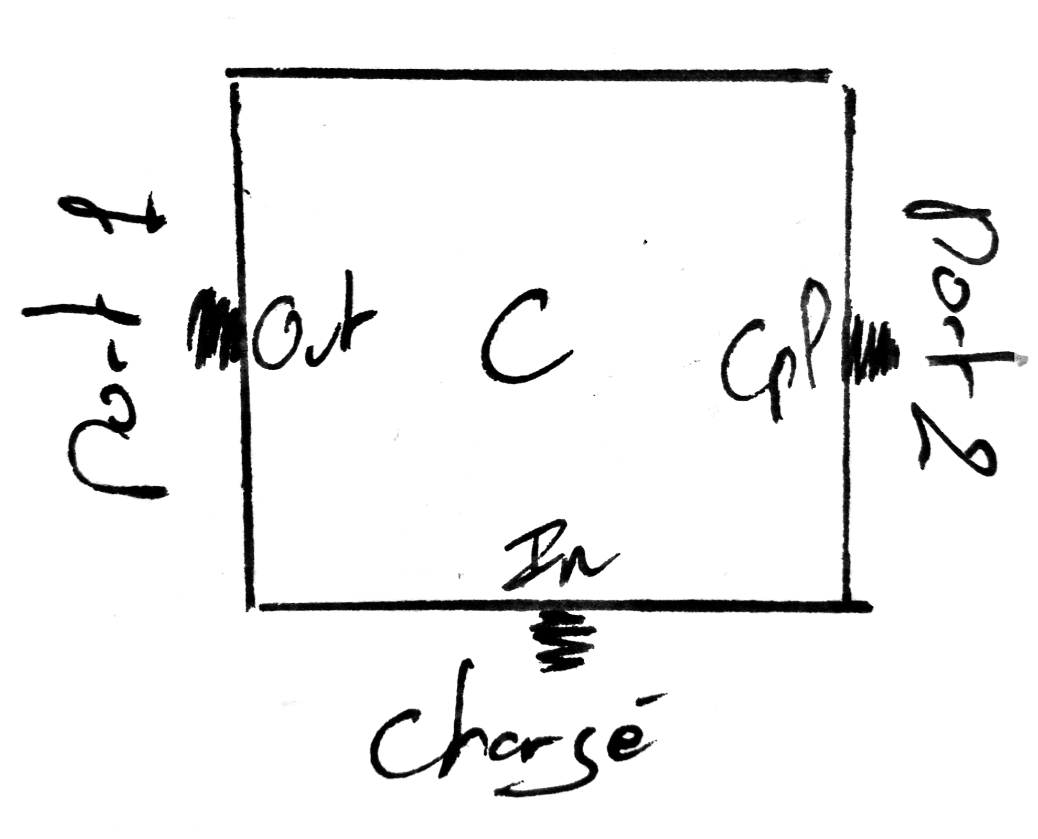 Port 1
Out
C
Cpl
Port 2
In
Chargé